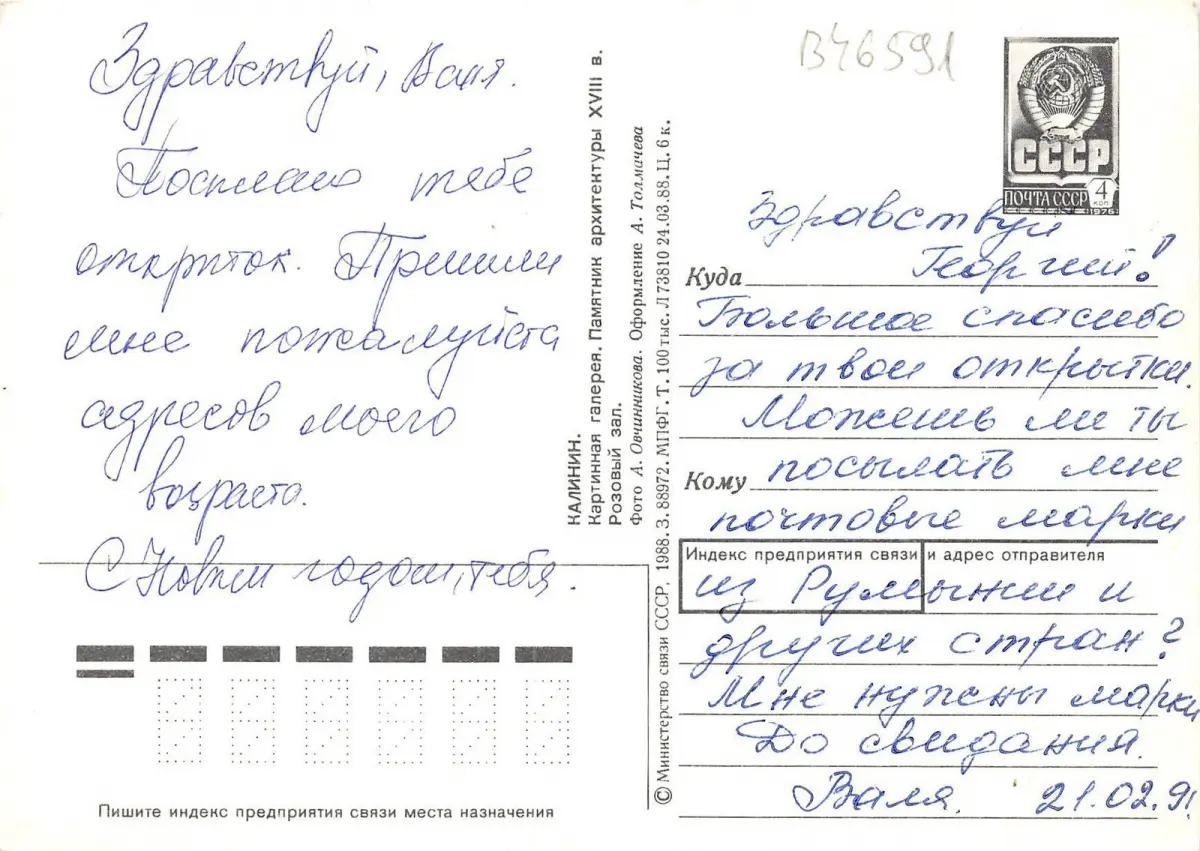 Здравствуй, Валя.
Посылаю тебе
открыток. Пришли
мне пожалуйста
адресов моего
возраста.
С Новым годом, тебя.
Пишите индекс предприятия связи места назначения
КАЛИНИН.
Картинная галерея. Памятник архитектуры XVIII в.
Розовый зал.
Фото А. Овчинникова. Оформление А. Толмачева
© Министерство связи СССР, 1988. З. 88972. МПФГ. Т. 100 тыс. Л 73810 24.03.88. Ц. 6 к.
В46591
СССР
ПОЧТА СССР 4 коп
1976
Здравствуй
Георгий!
Куда
Большое спасибо
за твои открытки.
Можешь ли ты
Кому посылать мне
почтовые марки
Индекс предприятия связи и адрес отправителя
из Румынии и
других стран?
Мне нужны марки
До свидания.
Валя. 21.02.91